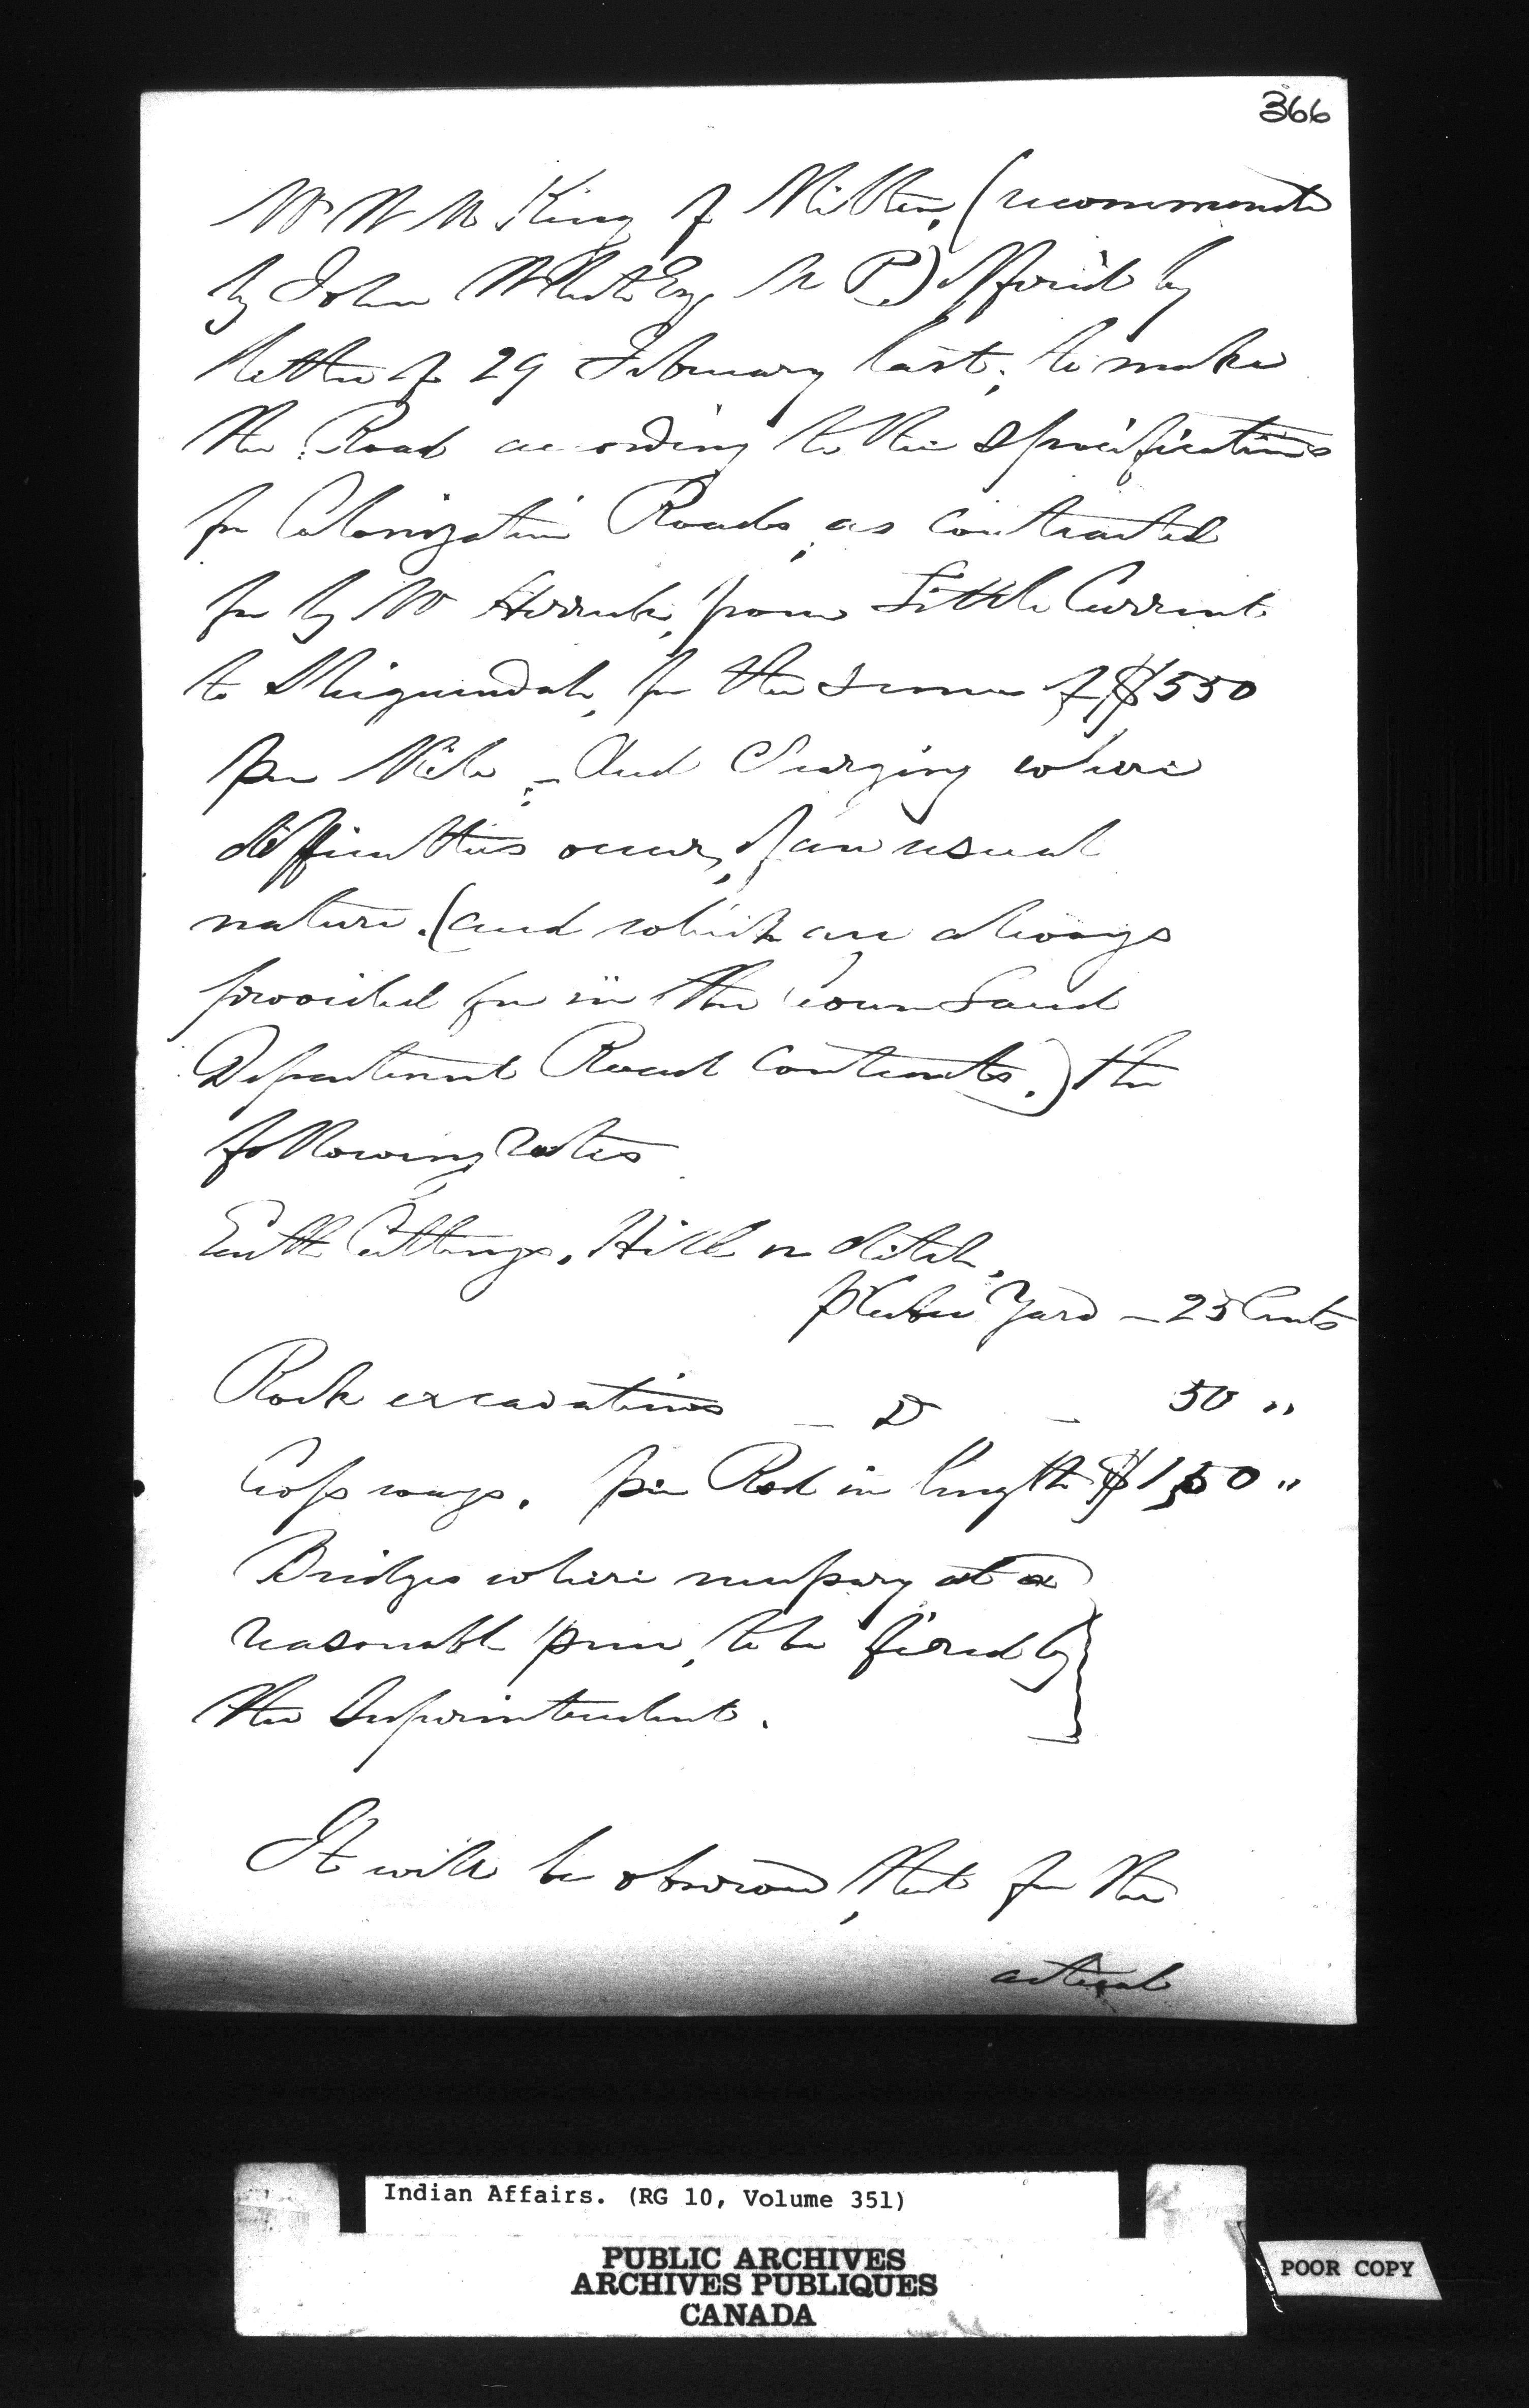 366
Mr W M King of Milton, (recommended
by John White Esq, M P.) Offered by
letter of 29 February last, to make
the Road according to the specifications
for Colonization Roads, as contracted
for by Mr Herrick, from Little Current
to Shiguindah, for the sum of $550
per Mile, - And Charging where
difficulties occur, of an usual
nature. (and which are always
provided for in the Crown Land
Department Road Contracts.) the
following rates
Earth Cuttings, Hill or ditch,
p Cubic Yard - 25 Cents
Rock excavations - Do - 50 "
Cross ways. per Rod in length $1,50 "
Bridges where necessary at a
reasonable price, to be fixed by
the Superintendent.
It will be observed, that for the
actual
Indian Affairs. (RG 10, Volume 351)
PUBLIC ARCHIVES
ARCHIVES PUBLIQUES
CANADA
POOR COPY